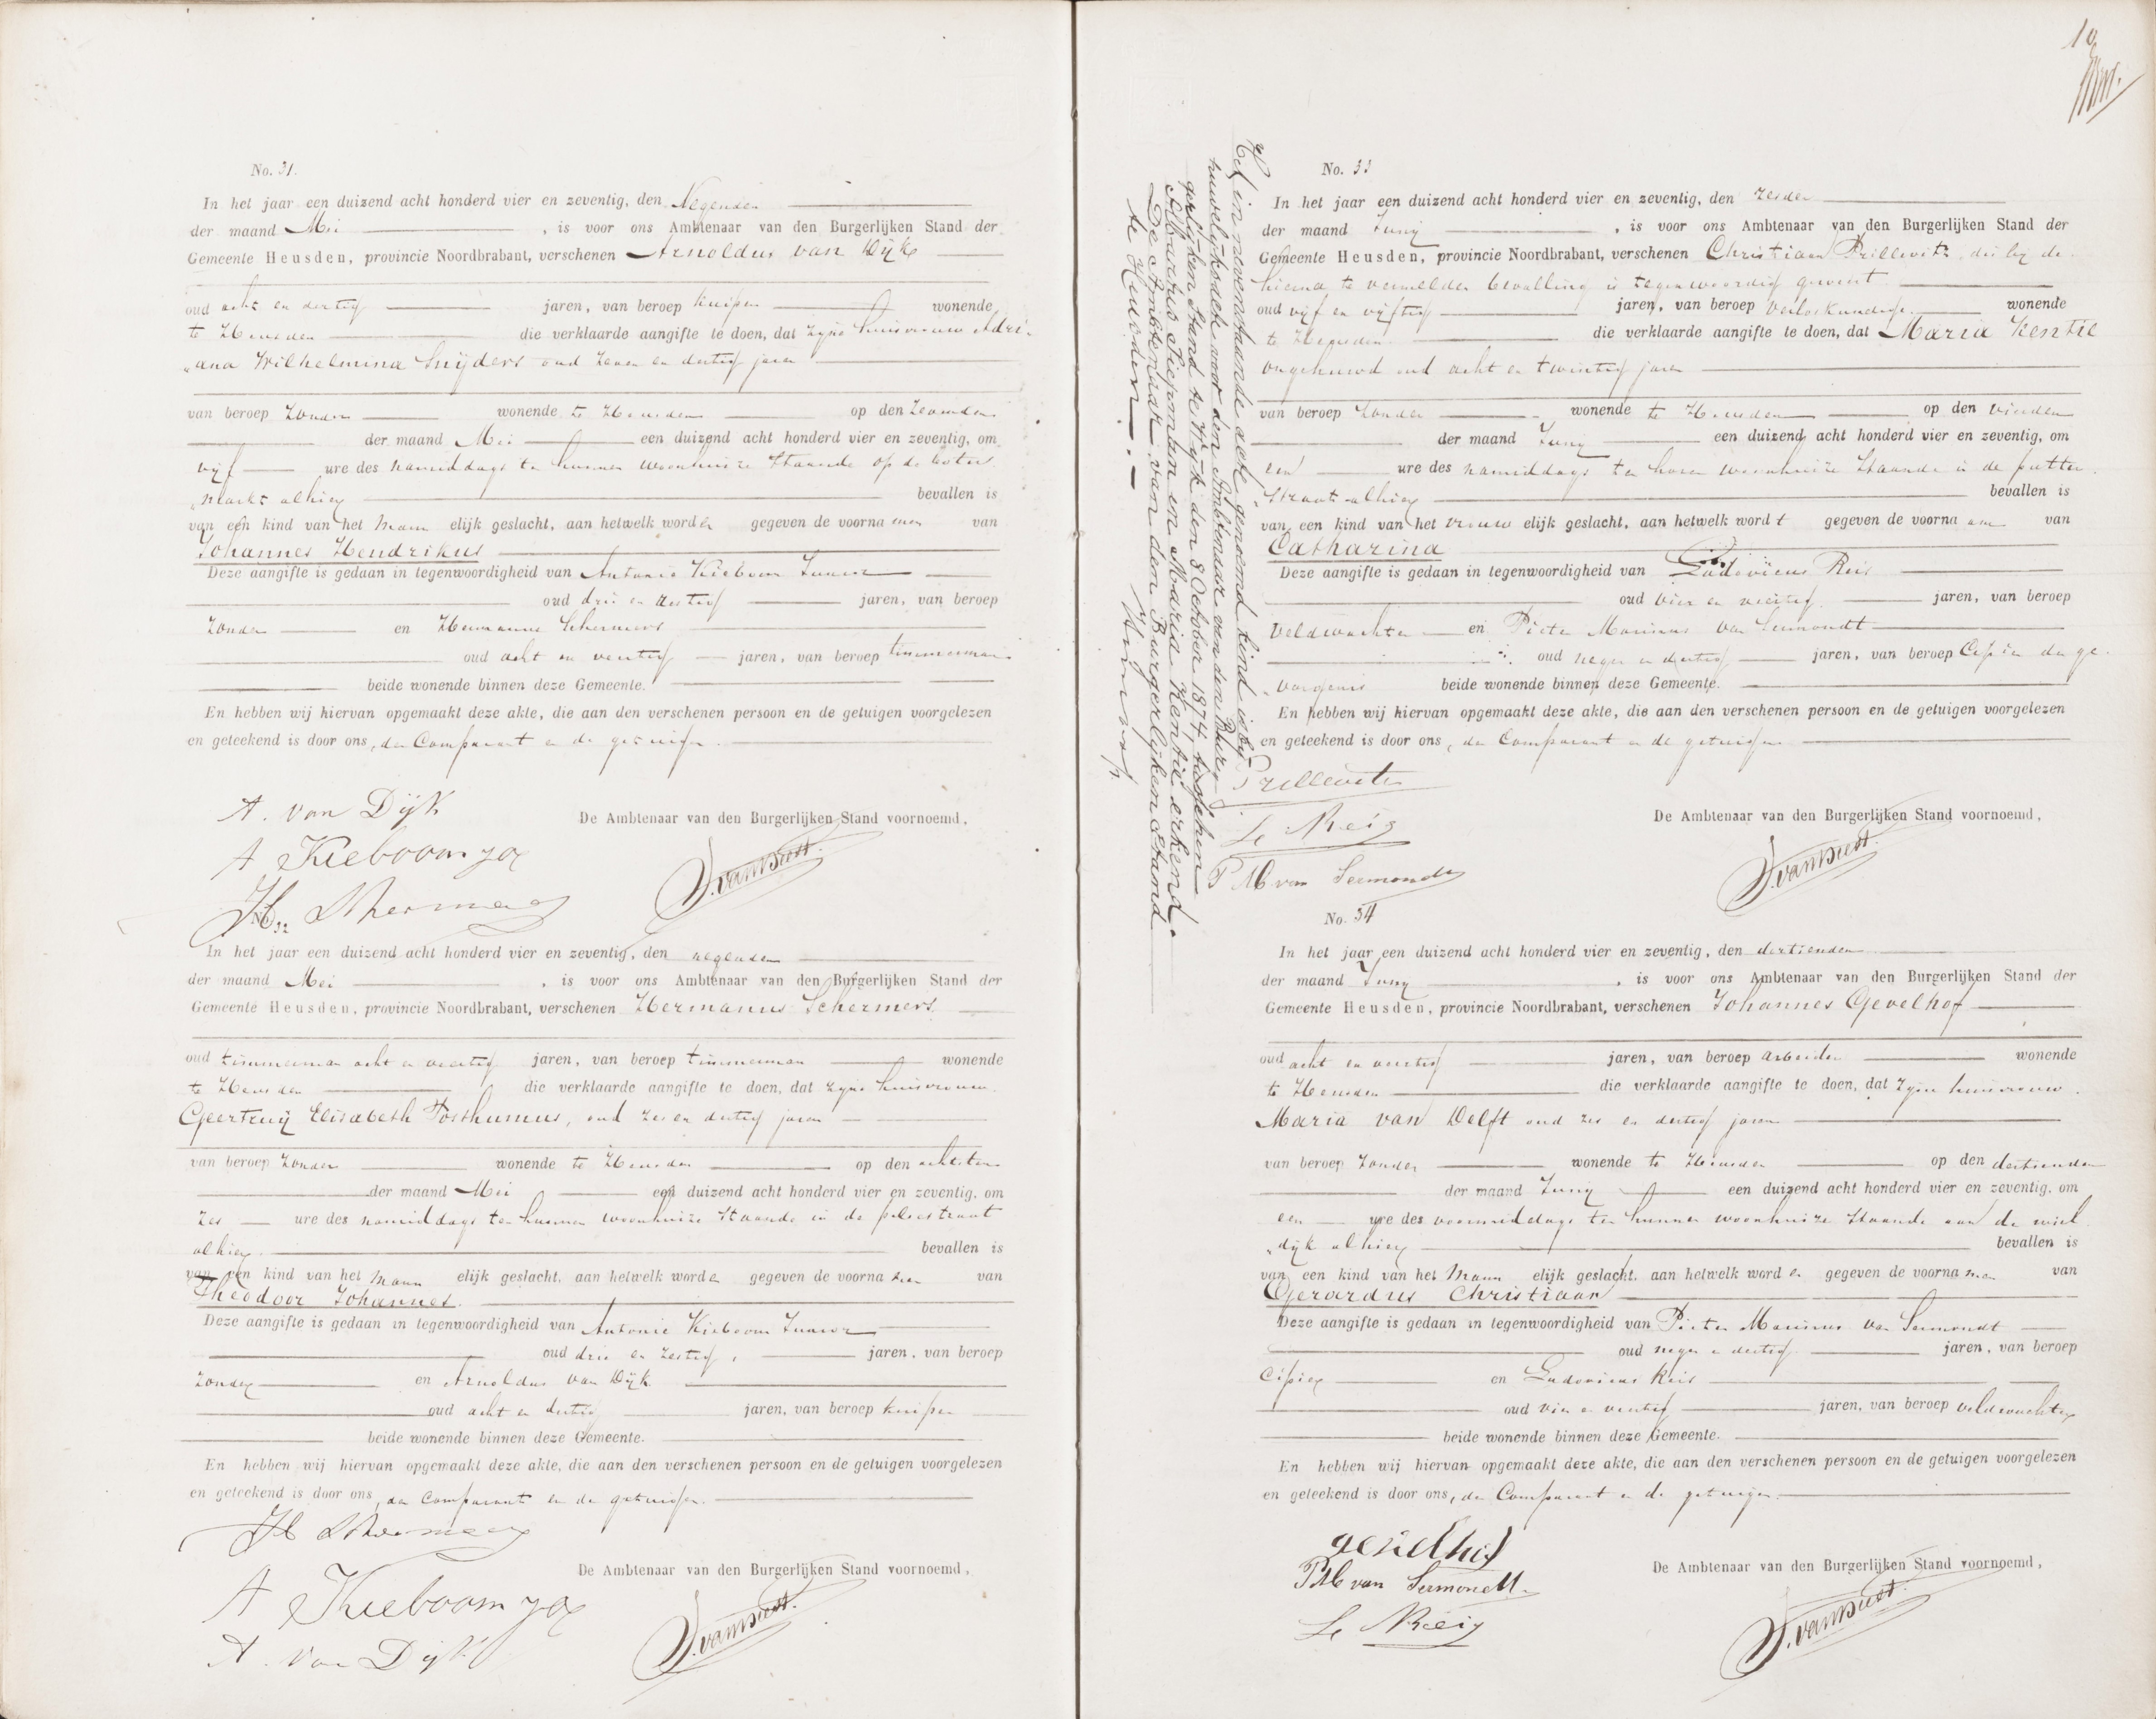 No. 31.
In het jaar een duizend acht honderd vier en zeventig, den Negenden
der maand Mei , is voor ons Ambtenaar van den Burgerlijken Stand der
Gemeente Heusden, provincie Noordbrabant, verschenen Arnoldus van Dijk
oud acht en dertig jaren, van beroep kuiper wonende
te Heusden die verklaarde aangifte te doen, dat zijne huisvrouw Adri-
„ana Wilhelmina Snijders oud zeven en dertig jaren
van beroep zonder wonende te Heusden op den zevenden
der maand Mei een duizend acht honderd vier en zeventig, om
vijf ure des namiddags te hunnen woonhuize staande op de boter
„markt alhier bevallen is
van een kind van het Mann elijk geslacht, aan hetwelk worden gegeven de voorna men van
Johannes Hendrikus
Deze aangifte is gedaan in tegenwoordigheid van Antonie Kieboom Junior
oud drie en zestig jaren, van beroep
zonder en Hermanus Schermers
oud acht en veertig jaren, van beroep timmerman
beide wonende binnen deze Gemeente.
En hebben wij hiervan opgemaakt deze akte, die aan den verschenen persoon en de getuigen voorgelezen
en geteekend is door ons, den Comparant en de getuigen.
A. van Dijk
De Ambtenaar van den Burgerlijken Stand voornoemd,
A Kieboom
H. Schermers
No. 32
In het jaar een duizend acht honderd vier en zeventig, den negenden
der maand Mei , is voor ons Ambtenaar van den Burgerlijken Stand der
Gemeente Heusden, provincie Noordbrabant, verschenen Hermanus Schermers
oud timmerman acht en veertig jaren, van beroep timmerman wonende
te Heusden die verklaarde aangifte te doen, dat zijne huisvrouw
Geertruij Elisabeth Posthumus, oud zes en dertig jaren
van beroep zonder wonende te Heusden op den achtsten
der maand Mei een duizend acht honderd vier en zeventig, om
zes ure des namiddags ten hunnen woonhuize staande in de
alhier bevallen is
van een kind van het Mann elijk geslacht, aan hetwelk worden gegeven de voorna men van
Theodoor Johannes.
Deze aangifte is gedaan in tegenwoordigheid van Antonie Kieboom Junior
oud drie en zestig, jaren, van beroep
zonder en Arnoldus van Dijk
oud acht en dertig jaren, van beroep kuiper
beide wonende binnen deze Gemeente.
En hebben wij hiervan opgemaakt deze akte, die aan den verschenen persoon en de getuigen voorgelezen
en geteekend is door ons, den Comparant en de getuigen.
H Schermers
De Ambtenaar van den Burgerlijken Stand voornoemd,
A Kieboom
A. van Dijk
10
Het in nevenstaande acte genoemd kind is bij
huwelijksacte voor den Ambtenaar van den Bur-
gerlijken Stand te Wijk den 8 October 1874, tusschen
Albartus Siepman en Maria Kentie erkend.
De Ambtenaar van den Burgerlijken Stand
te Heusden.
No. 33
In het jaar een duizend acht honderd vier en zeventig, den zesden
der maand Junij , is voor ons Ambtenaar van den Burgerlijken Stand der
Gemeente Heusden, provincie Noordbrabant, verschenen Christiaan Prillevitz die bij de
hierna te vermelden bevalling is tegenwoordig geweest
oud vijf en vijftig jaren, van beroep verloskundige wonende
te Heusden die verklaarde aangifte te doen, dat Maria Kentie
ongehuwd oud acht en twintig jaren
van beroep zonder wonende te Heusden op den vierden
der maand Junij een duizend acht honderd vier en zeventig, om
een ure des namiddags ten haren woonhuize staande in de putter
„straat alhier bevallen is
van een kind van het vrouw elijk geslacht, aan hetwelk wordt gegeven de voorna am van
Catharina
Deze aangifte is gedaan in tegenwoordigheid van Ludovicus Reis
oud vier en veertig jaren, van beroep
veldwachter en Pieter Marinus van Sermondt
oud negen en dertig jaren, van beroep Cipier der ge-
„vangenis beide wonende binnen deze Gemeente.
En hebben wij hiervan opgemaakt deze akte, die aan den verschenen persoon en de getuigen voorgelezen
en geteekend is door ons, den Comparant en de getuigen
Prillevitz
L. Reis
De Ambtenaar van den Burgerlijken Stand voornoemd,
P M van Sermondt
No. 34
In het jaar een duizend acht honderd vier en zeventig, den dertienden
der maand Junij , is voor ons Ambtenaar van den Burgerlijken Stand der
Gemeente Heusden, provincie Noordbrabant, verschenen Johannes Gevelhof
oud acht en veertig jaren, van beroep arbeider wonende
te Heusden die verklaarde aangifte te doen, dat zijne huisvrouw
Maria van Delft oud zes en dertig jaren
van beroep zonder wonende te Heusden op den dertienden
der maand Junij een duizend acht honderd vier en zeventig, om
een ure des voormiddags ten hunnen woonhuize staande aan de wiel
„dijk alhier bevallen is
van een kind van het Mann elijk geslacht, aan hetwelk worden gegeven de voorna men van
Gerardus Christiaan
Deze aangifte is gedaan in tegenwoordigheid van Pieter Marinus van Sermondt
oud negen en dertig jaren, van beroep
Cipier en Ludovicus Reis
oud vier en veertig jaren, van beroep veldwachter
beide wonende binnen deze Gemeente.
En hebben wij hiervan opgemaakt deze akte, die aan den verschenen persoon en de getuigen voorgelezen
en geteekend is door ons, den Comparant en de getuigen.
gevelhof
P M van Sermondt
De Ambtenaar van den Burgerlijken Stand voornoemd,
L. Reis